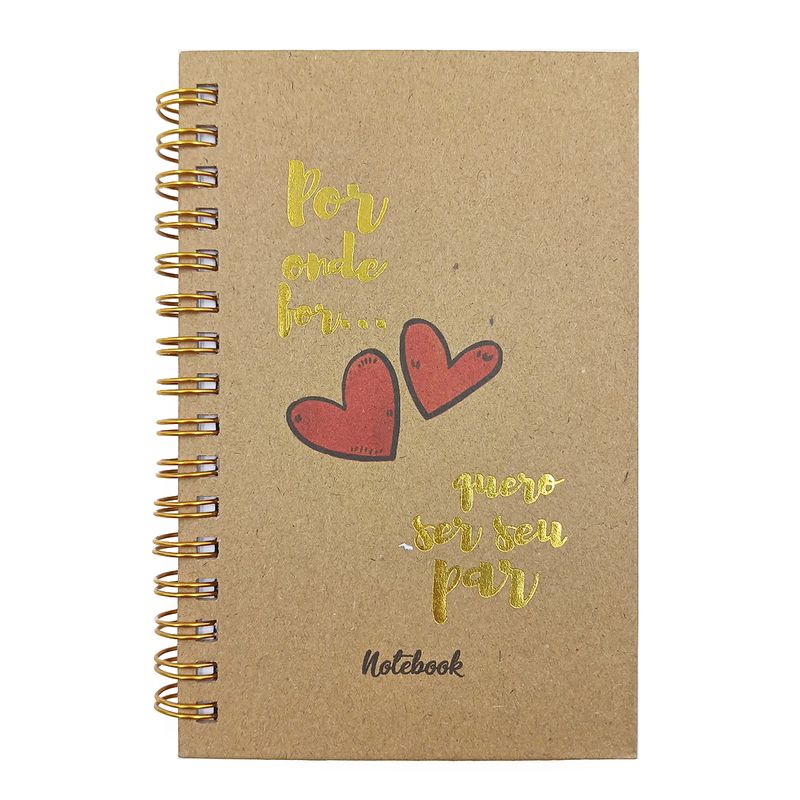 Por
onde
for...
quero
ser seu
par
Notebook